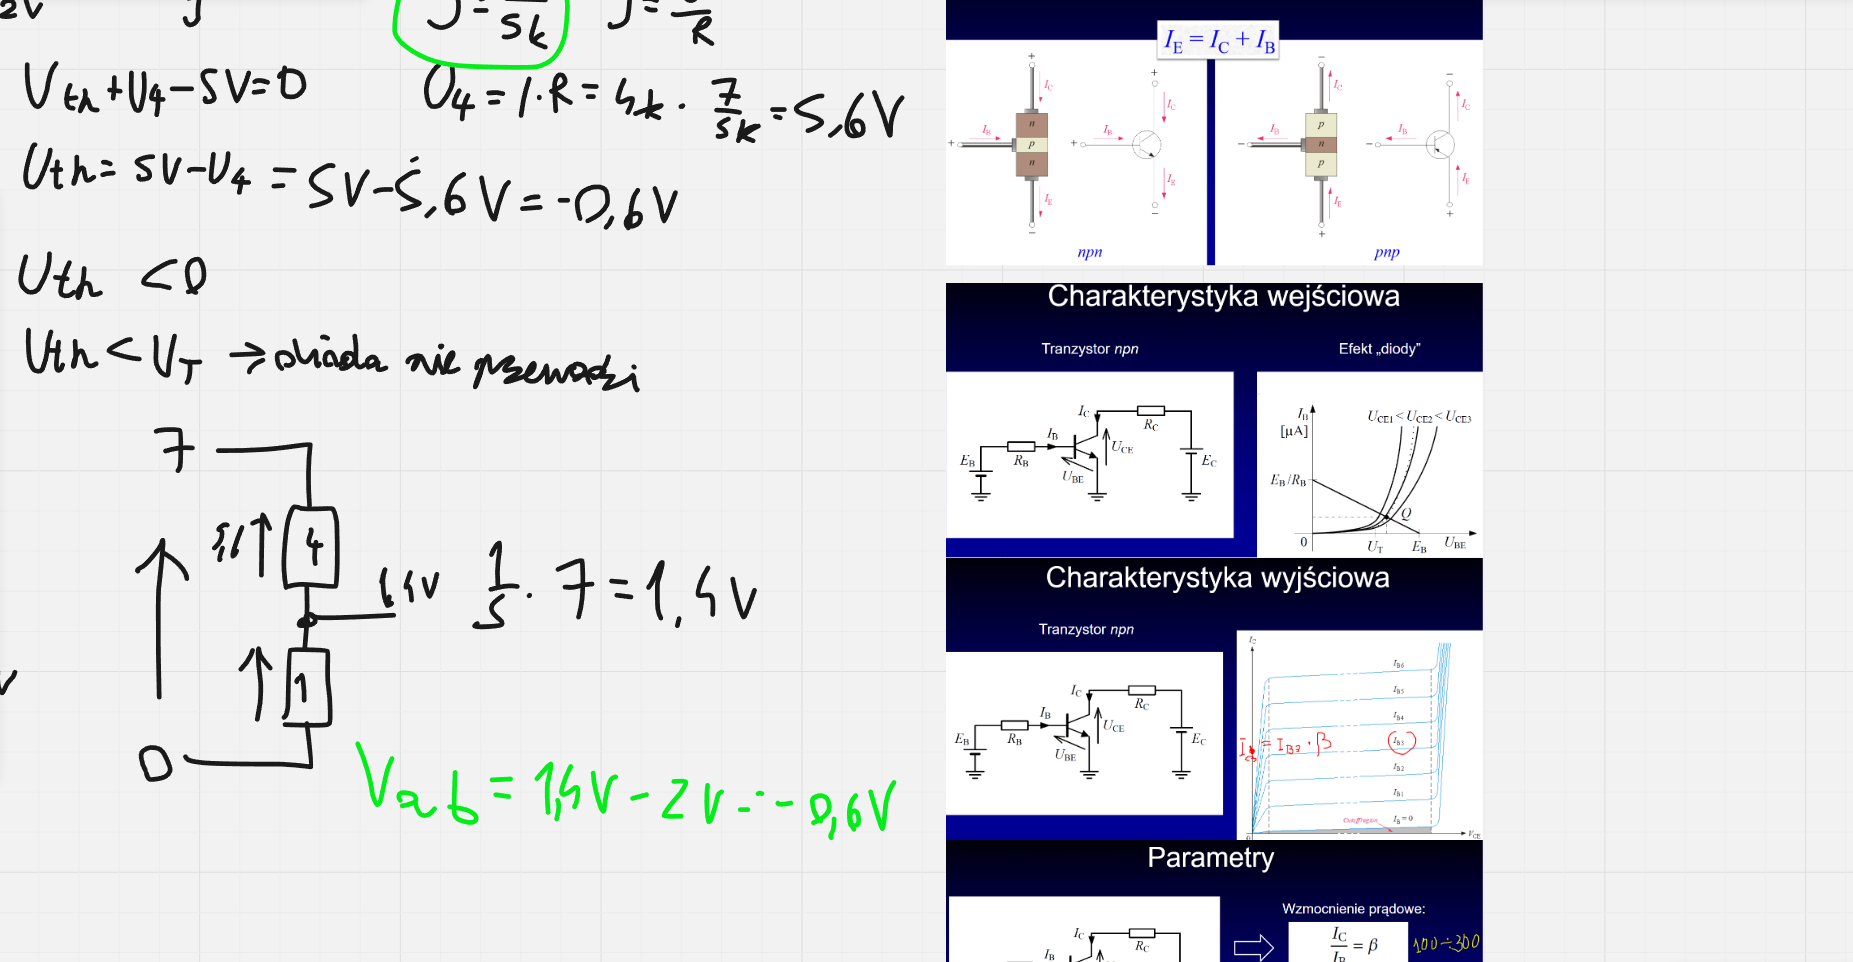 2V
J = 5k J = R
Uth + U4 - 5V = 0 U4 = I · R = 4k · 7/5k = 5,6V
Uth = 5V - U4 = 5V - 5,6V = -0,6V
Uth < 0
Uth < UT → dioda nie przewodzi
7
5,6 4
1,4V 1/5 · 7 = 1,4V
1
0
Vab = 1,4V - 2V = -0,6V
IE = IC + IB
+ + - -
IC IC IC IC
n p
IB IB IB IB
+ p + - n -
n p
IE IE IE IE
- - + +
npn pnp
Charakterystyka wejściowa
Tranzystor npn Efekt „diody”
IC RC
IB UCE
EB RB UBE EC
IB [μA] UCE1 < UCE2 < UCE3
EB/RB Q
0 UT EB UBE
Charakterystyka wyjściowa
Tranzystor npn
IC RC
IB UCE
EB RB UBE EC
IC
IB6
IB5
IB4
IB3 = IB3 · β
IB2
IB1
Cutoff region IB = 0
0 VCE
Parametry
Wzmocnienie prądowe:
IC RC
IB
IC/IB = β 100÷300